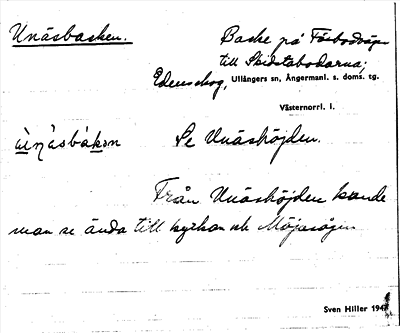 Unäsbacken.
Backe på Fäbodvägen
till Skidstabodarna;
Edenskog, Ullångers sn, Ångermanl. s. doms. tg.
Västernorrl. l.
Se Unäshöjden.
Från Unäshöjden kunde
man se ända till kyrkan och
Sven Hiller 194